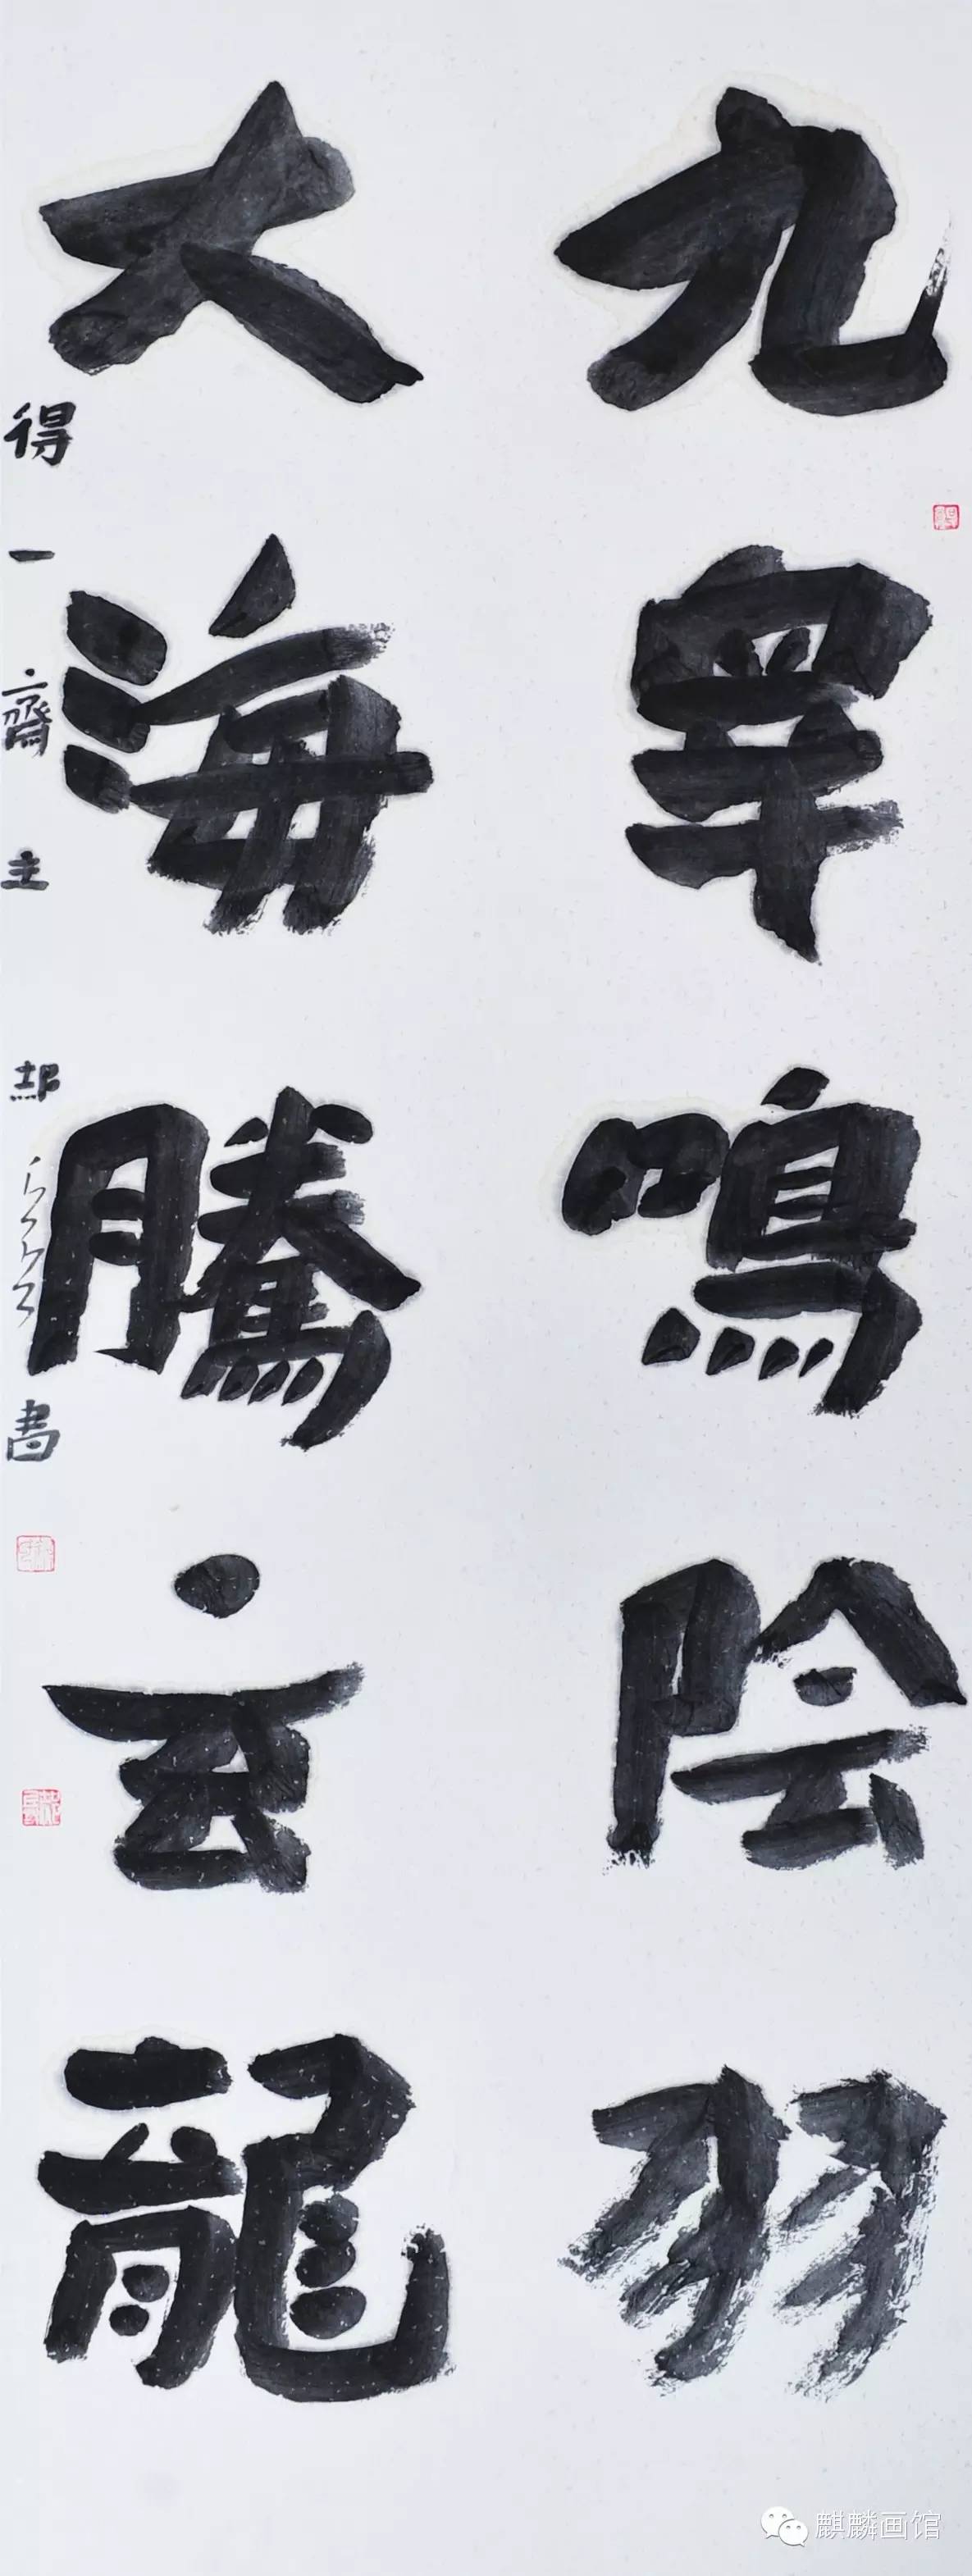 九睪鳴陰羽
大海騰玄龍
得一齋主郝書
麒麟画馆